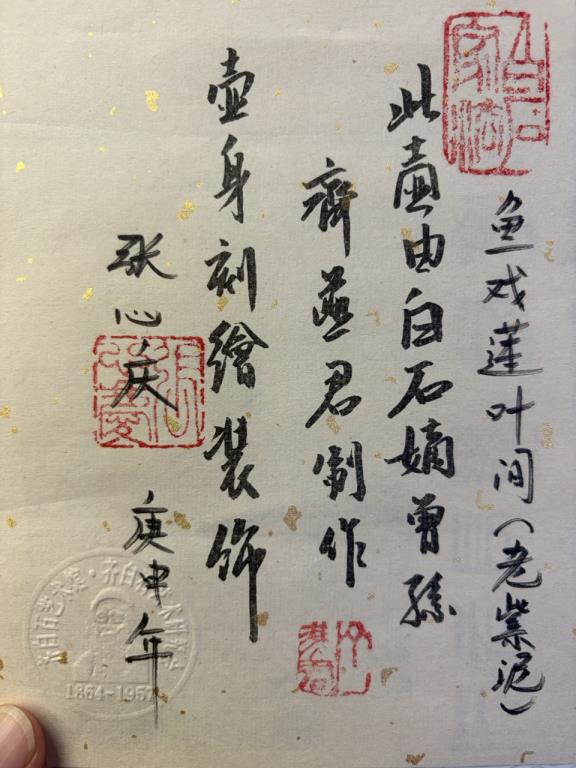 鱼戏蓮叶间(老紫泥)
此壺由白石嫡曾孫
齊燕君制作
壺身刻繪装饰
张心庆
庚申年
1864-1957